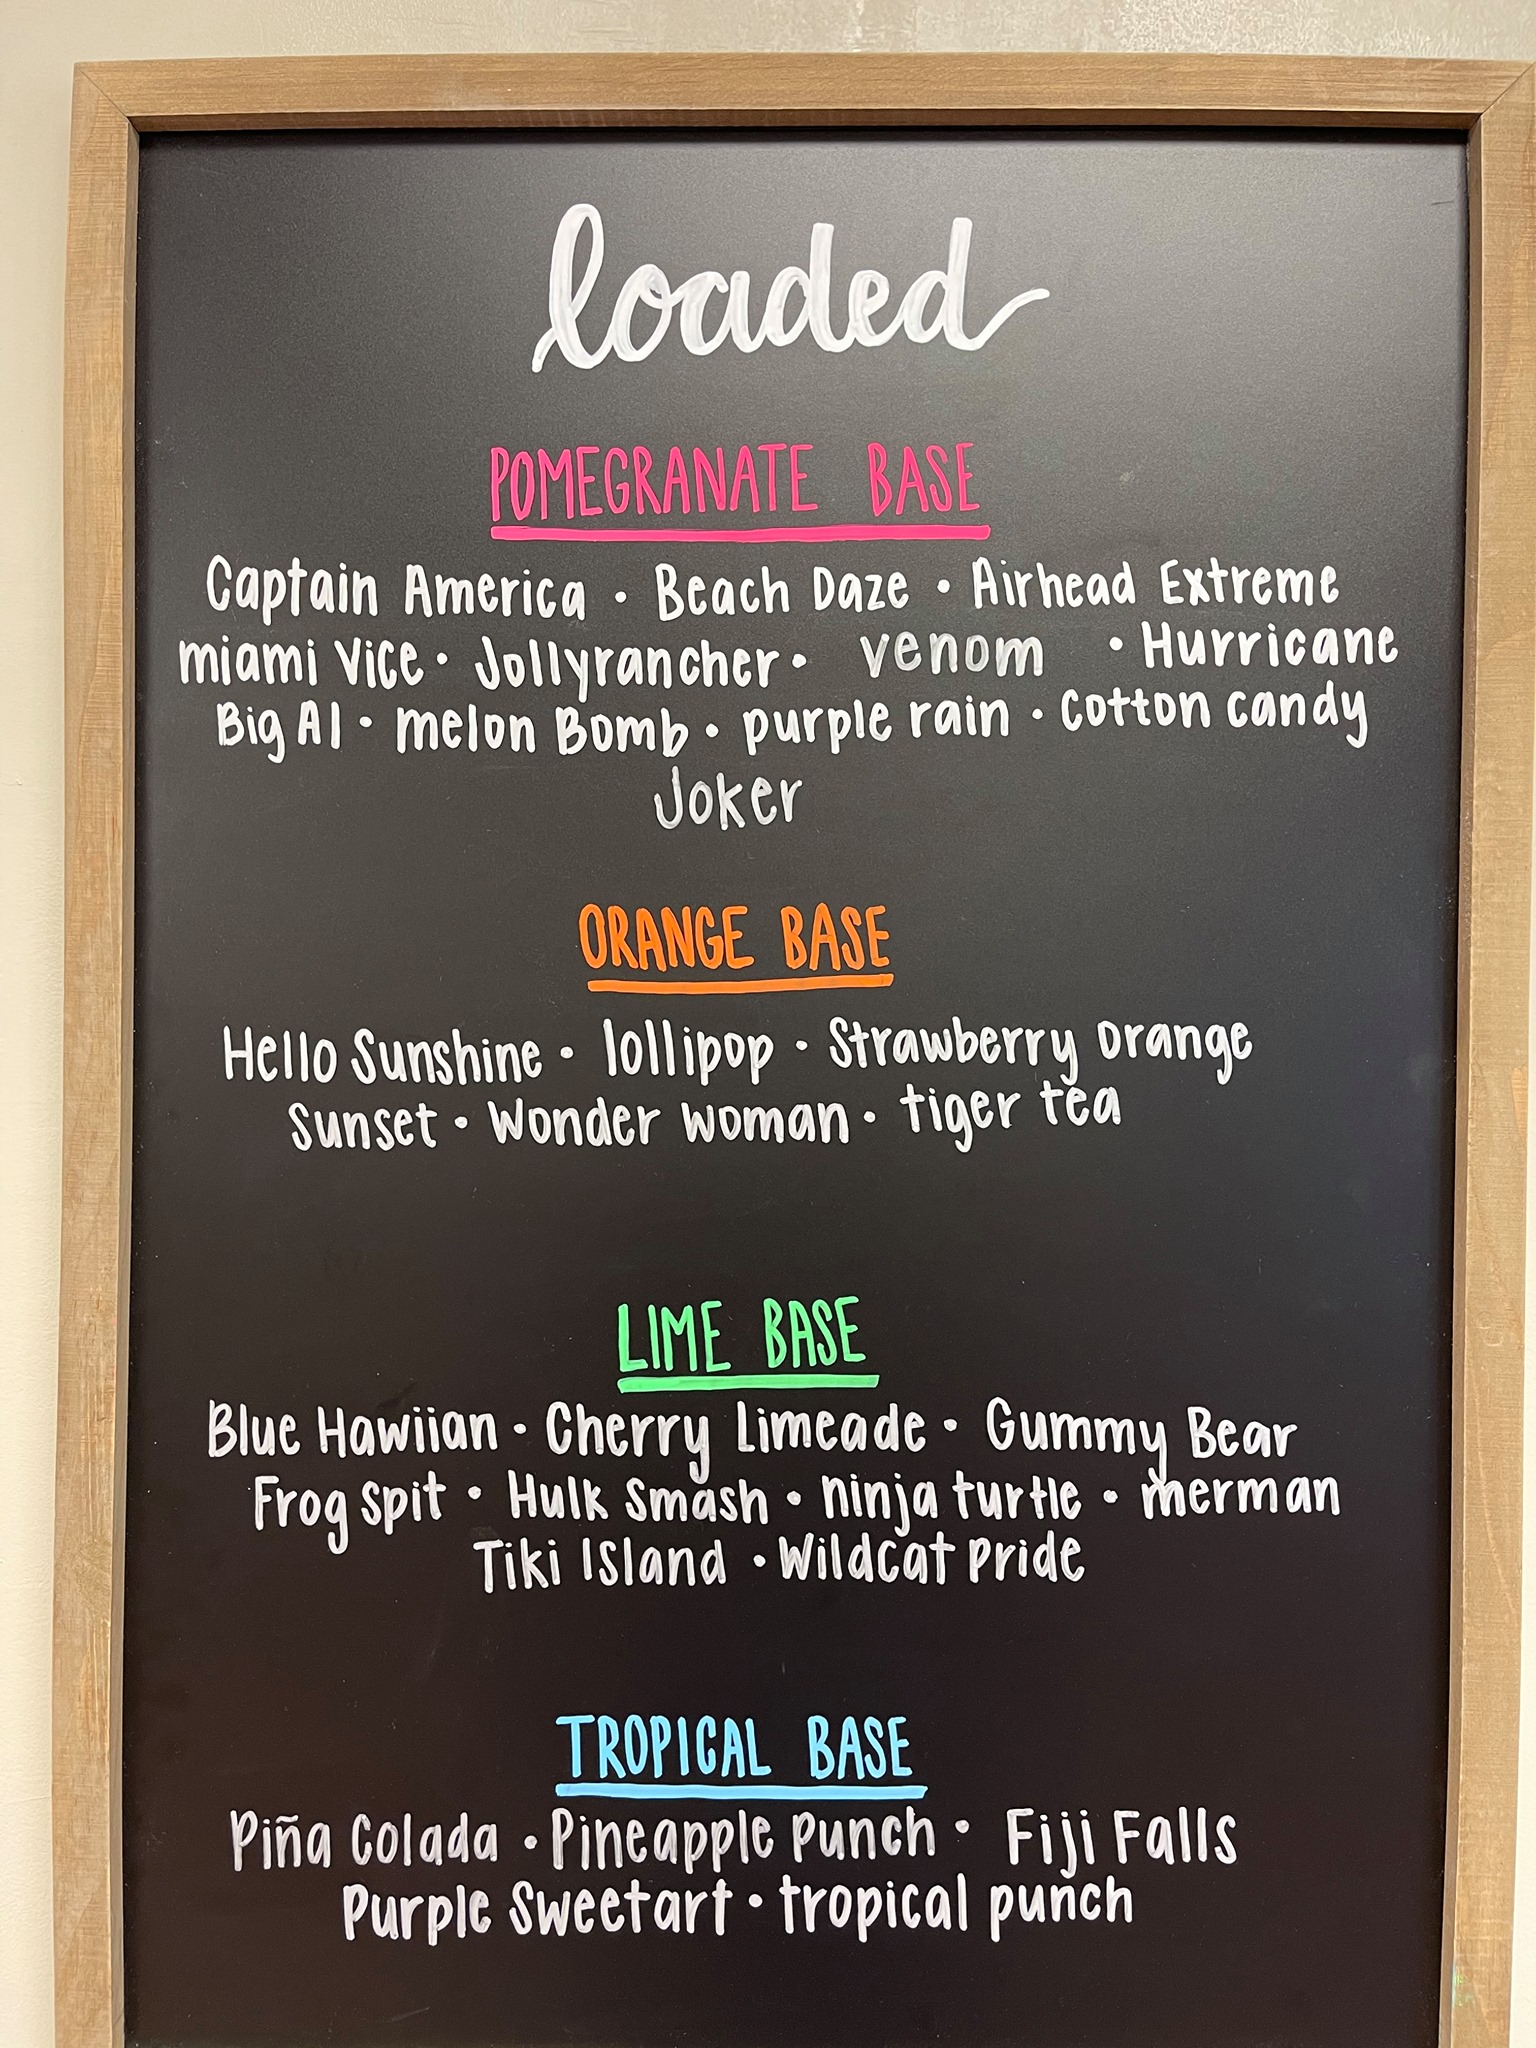 loaded
POMEGRANATE BASE
Captain America • Beach Daze • Airhead Extreme
miami Vice • Jollyrancher • venom • Hurricane
Big Al • melon Bomb • purple rain • cotton candy
Joker
ORANGE BASE
Hello Sunshine • lollipop • Strawberry orange
Sunset • Wonder Woman • tiger tea
LIME BASE
Blue Hawiian • Cherry Limeade • Gummy Bear
Frog Spit • Hulk Smash • ninja turtle • merman
Tiki Island • Wildcat Pride
TROPICAL BASE
Piña Colada • Pineapple Punch • Fiji Falls
Purple Sweetart • tropical punch